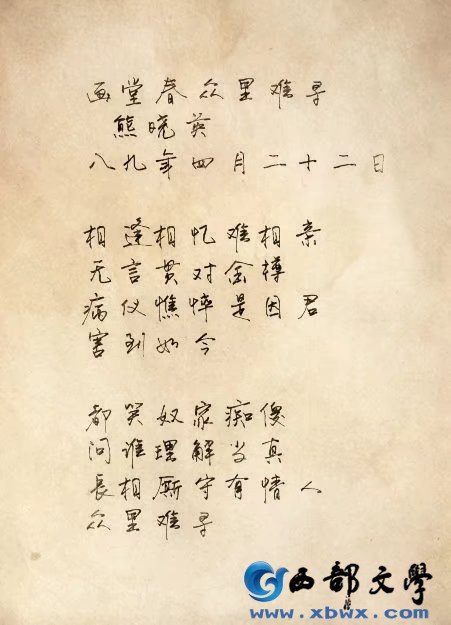 画堂春众里难寻
熊晓英
八九年四月二十二日
相逢相忆难相亲
无言贯对金樽
病仪憔悴是因君
害到如今
都笑奴家痴傻
问谁理解当真
長相厮守有情人
众里难寻
西部文學
www.xbwx.com